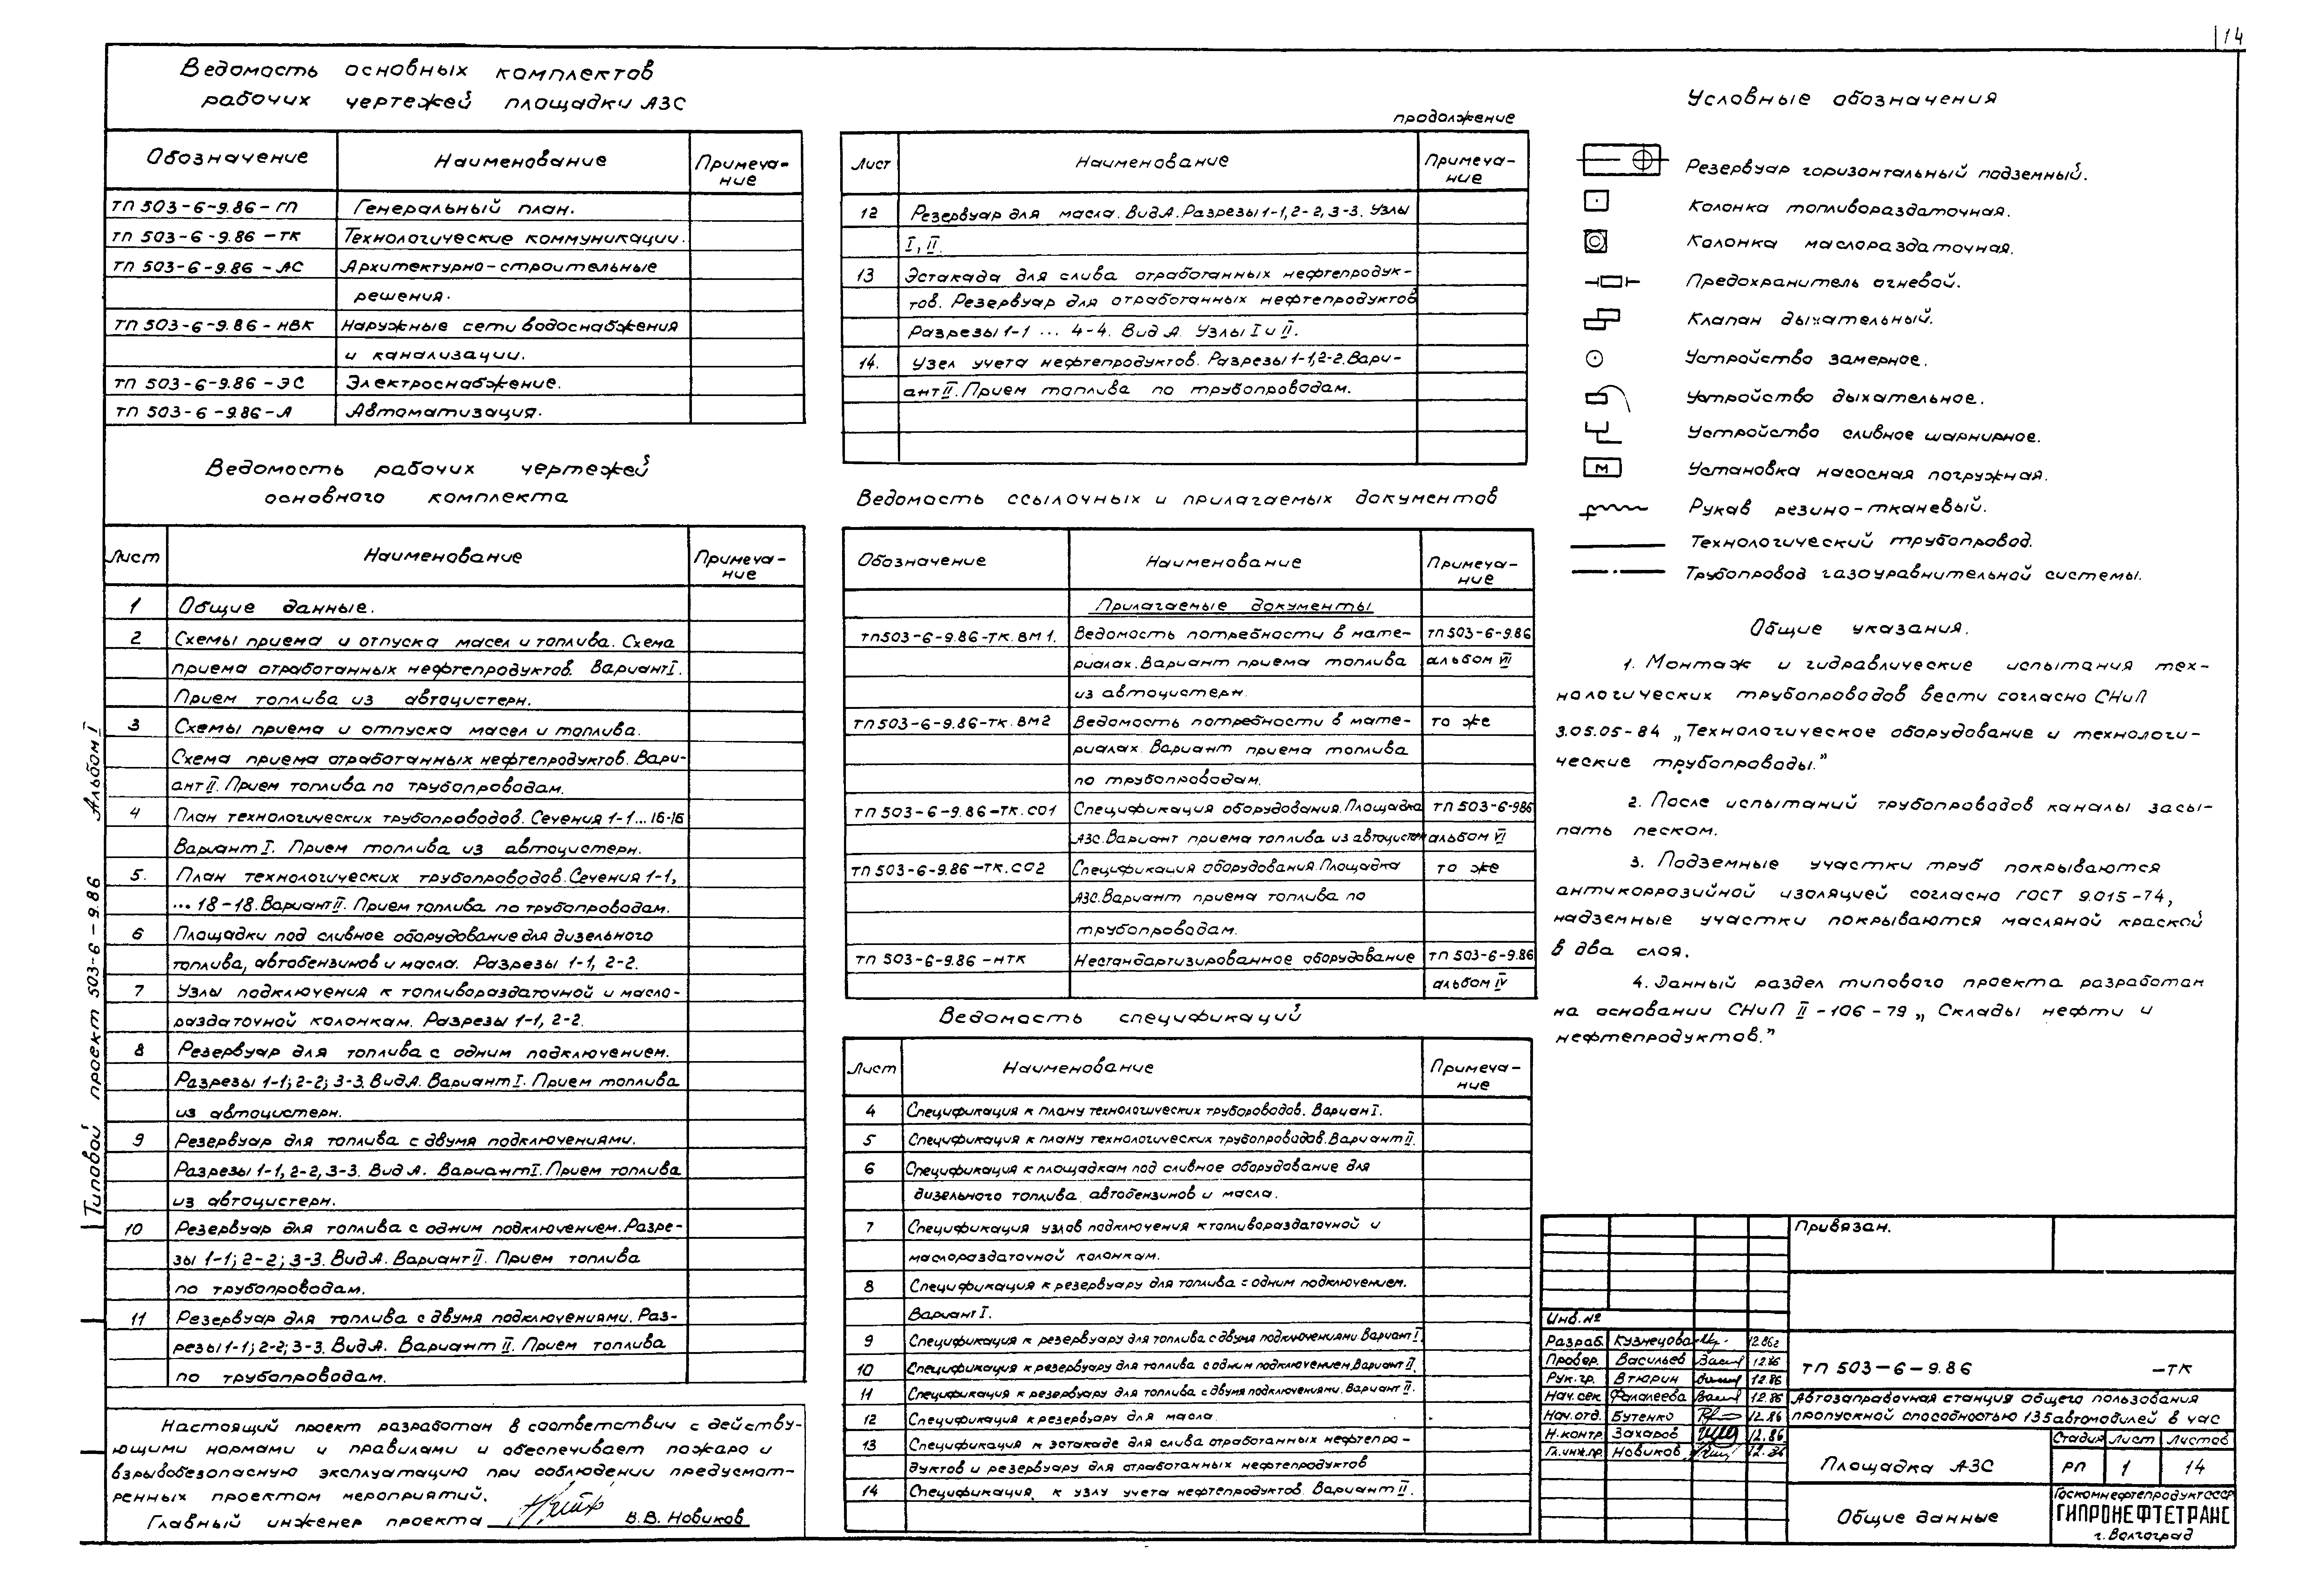 14
Ведомость основных комплектов
рабочих чертежей площадки АЗС
Обозначение Наименование Примеча-
ние
ТП 503-6-9.86-ГП Генеральный план.
ТП 503-6-9.86-ТК Технологические коммуникации.
ТП 503-6-9.86-АС Архитектурно-строительные
решения.
ТП 503-6-9.86-НВК Наружные сети водоснабжения
и канализации.
ТП 503-6-9.86-ЭС Электроснабжение.
ТП 503-6-9.86-А Автоматизация.
Ведомость рабочих чертежей
основного комплекта
Лист Наименование Примеча-
ние
1 Общие данные.
2 Схемы приема и отпуска масел и топлива. Схема
приема отработанных нефтепродуктов. Вариант I.
Прием топлива из автоцистерн.
3 Схемы приема и отпуска масел и топлива.
Схема приема отработанных нефтепродуктов. Вари-
ант II. Прием топлива по трубопроводам.
4 План технологических трубопроводов. Сечения 1-1...16-16
Вариант I. Прием топлива из автоцистерн.
5. План технологических трубопроводов. Сечения 1-1,
...18-18. Вариант II. Прием топлива по трубопроводам.
6 Площадки под сливное оборудование для дизельного
топлива, автобензинов и масла. Разрезы 1-1, 2-2.
7 Узлы подключения к топливораздаточной и масло-
раздаточной колонкам. Разрезы 1-1, 2-2.
8 Резервуар для топлива с одним подключением.
Разрезы 1-1; 2-2; 3-3. Вид А. Вариант I. Прием топлива
из автоцистерн.
9 Резервуар для топлива с двумя подключениями.
Разрезы 1-1, 2-2, 3-3. Вид А. Вариант I. Прием топлива
из автоцистерн.
10 Резервуар для топлива с одним подключением. Разре-
зы 1-1; 2-2; 3-3. Вид А. Вариант II. Прием топлива
по трубопроводам.
11 Резервуар для топлива с двумя подключениями. Раз-
резы 1-1; 2-2; 3-3. Вид А. Вариант II. Прием топлива
по трубопроводам.
Настоящий проект разработан в соответствии с действу-
ющими нормами и правилами и обеспечивает пожаро и
взрывобезопасную эксплуатацию при соблюдении предусмот-
ренных проектом мероприятий.
Главный инженер проекта В.В. Новиков
Типовой проект 503-6-9.86 Альбом I
продолжение
Лист Наименование Примеча-
ние
12 Резервуар для масла. Вид А. Разрезы 1-1, 2-2, 3-3. Узлы
I, II.
13 Эстакада для слива отработанных нефтепродук-
тов. Резервуар для отработанных нефтепродуктов
Разрезы 1-1 ... 4-4. Вид А. Узлы I и II.
14. Узел учета нефтепродуктов. Разрезы 1-1, 2-2. Вари-
ант II. Прием топлива по трубопроводам.
Ведомость ссылочных и прилагаемых документов
Обозначение Наименование Примеча-
ние
Прилагаемые документы
ТП503-6-9.86-ТК.ВМ1. Ведомость потребности в мате- ТП503-6-9.86
риалах. Вариант приема топлива альбом VII
из автоцистерн.
ТП503-6-9.86-ТК.ВМ2 Ведомость потребности в мате- то же
риалах. Вариант приема топлива
по трубопроводам.
ТП503-6-9.86-ТК.СО1 Спецификация оборудования. Площадка ТП 503-6-986
АЗС. Вариант приема топлива из автоцистерн альбом VI
ТП 503-6-9.86-ТК.СО2 Спецификация оборудования. Площадка то же
АЗС. Вариант приема топлива по
трубопроводам.
ТП 503-6-9.86-НТК Нестандартизированное оборудование ТП 503-6-9.86
альбом IV
Ведомость спецификаций
Лист Наименование Примеча-
ние
4 Спецификация к плану технологических трубороводов. Вариан I.
5 Спецификация к плану технологических трубопроводов. Вариант II.
6 Спецификация к площадкам под сливное оборудование для
дизельного топлива, автобензинов и масла.
7 Спецификация узлов подключения к топливораздаточной и
маслораздаточной колонкам.
8 Спецификация к резервуару для топлива с одним подключением.
Вариант I.
9 Спецификация к резервуару для топлива с двумя подключениями. Вариант I.
10 Спецификация к резервуару для топлива с одним подключением. Вариант II.
11 Спецификация к резервуару для топлива с двумя подключениями. Вариант II.
12 Спецификация к резервуару для масла.
13 Спецификация к эстакаде для слива отработанных нефтепро-
дуктов и резервуару для отработанных нефтепродуктов
14 Спецификация к узлу учета нефтепродуктов. Вариант II.
Условные обозначения
Резервуар горизонтальный подземный.
Колонка топливораздаточная.
Колонка маслораздаточная.
Предохранитель огневой.
Клапан дыхательный.
Устройство замерное.
Устройство дыхательное.
Устройство сливное шарнирное.
М Установка насосная погружная.
Рукав резино-тканевый.
Технологический трубопровод.
Трубопровод газоуравнительной системы.
Общие указания.
1. Монтаж и гидравлические испытания тех-
нологических трубопроводов вести согласно СНиП
3.05.05-84 „Технологическое оборудование и технологи-
ческие трубопроводы.”
2. После испытаний трубопроводов каналы засы-
пать песком.
3. Подземные участки труб покрываются
антикоррозийной изоляцией согласно ГОСТ 9.015-74,
надземные участки покрываются масляной краской
в два слоя.
4. Данный раздел типового проекта разработан
на основании СНиП II-106-79 „Склады нефти и
нефтепродуктов.”
Привязан.
Инв.№
Разраб. Кузнецова 12.86г
Провер. Васильев 12.86
Рук.гр. Втюрин 12.86
Нач.сек. Фалалеева 12.86
Нач.отд. Бутенко 12.86
Н.контр. Захаров 12.86
Гл.инж.пр. Новиков 12.86
ТП 503-6-9.86 -ТК
Автозаправочная станция общего пользования
пропускной способностью 135 автомобилей в час
Площадка АЗС
Стадия Лист Листов
РП 1 14
Общие данные
Госкомнефтепродукт СССР
ГИПРОНЕФТЕТРАНС
г. Волгоград